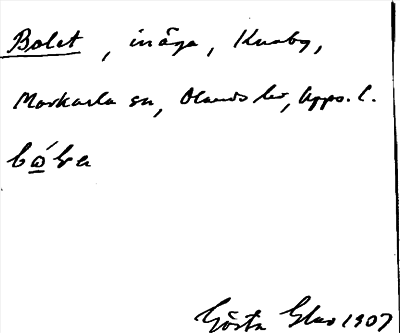 Bolet, inäga, Knaby,
Morkarla sn, Olands hd, Upps. l.
Gösta Glas 1907